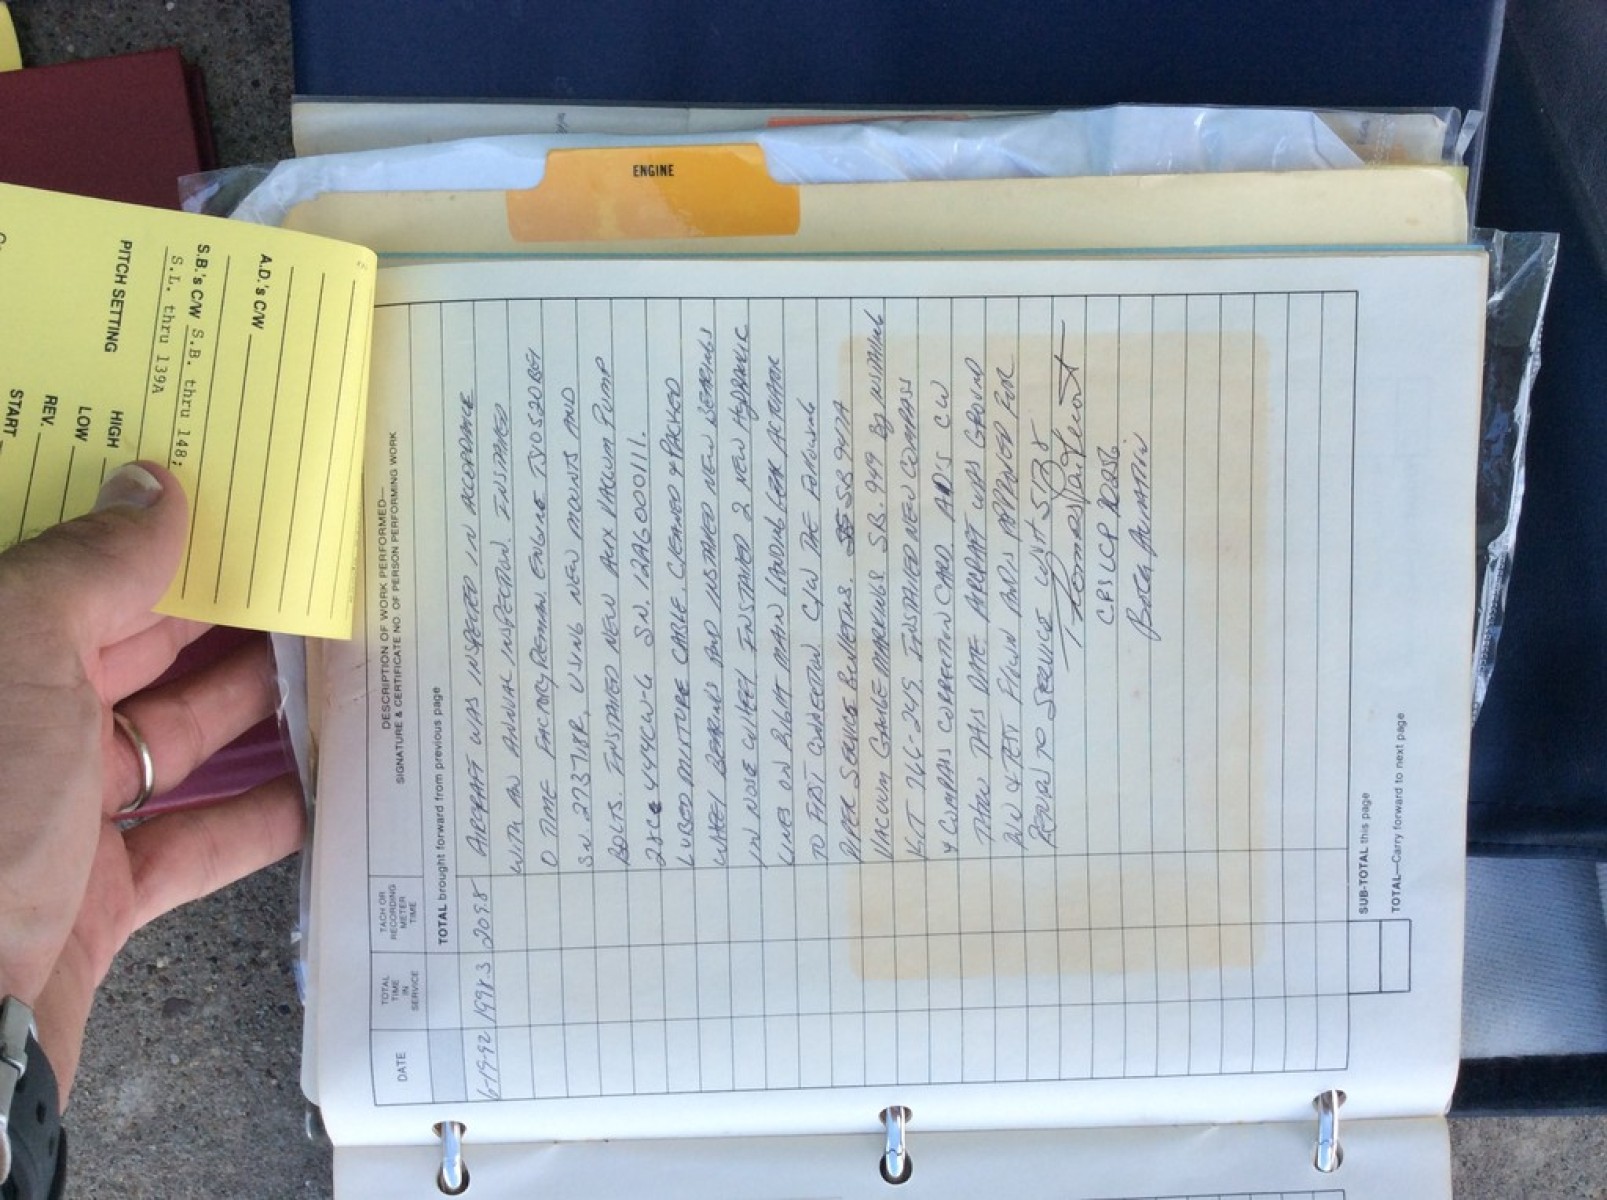 ENGINE
A.D.'s C/W
S.B.'s C/W S.B. thru 148;
S.L. thru 139A
PITCH SETTING
HIGH
LOW
REV.
START
DATE
TOTAL TIME IN SERVICE
TACH OR RECORDING METER TIME
DESCRIPTION OF WORK PERFORMED—
SIGNATURE & CERTIFICATE NO. OF PERSON PERFORMING WORK
TOTAL brought forward from previous page
6-19-92 1998.3 2098 AIRCRAFT WAS INSPECTED IN ACCORDANCE
WITH AN ANNUAL INSPECTION. INSTALLED
O TIME FACTORY REMAN. ENGINE TIO520BE1
SN. 273718R, USING NEW MOUNTS AND
BOLTS. INSTALLED NEW AUX VACUUM PUMP
441CW-6 SN. 12A6000111.
LUBED MIXTURE CABLE. CLEANED & PACKED
WHEEL BEARINGS AND INSTALLED NEW BEARINGS
IN NOSE WHEEL INSTALLED 2 NEW HYDRAULIC
LINES ON RIGHT MAIN LANDING GEAR ACTUATOR
TO FIRST CONNECTION C/W THE FOLLOWING
PIPER SERVICE BULLETINS. SB 947A
VACUUM GAUGE MARKINGS SB. 949 BY INSTALLING
KIT 766-245 INSTALLED NEW COMPASS
& COMPASS CORRECTION CARD. AD'S CW
THRU THIS DATE. AIRCRAFT WAS GROUND
RUN & TEST FLOWN AND IS APPROVED FOR
RETURN TO SERVICE
CPS UCR
BOCA AVIATION
SUB-TOTAL this page
TOTAL—Carry forward to next page